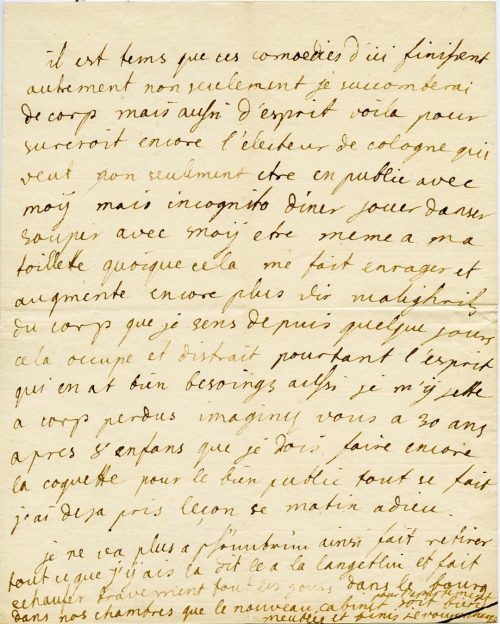 il est tems que ces comoedies d'ici finissent
autrement non seulement je succomberai
de corp mais aussi d'esprit voila pour
surcroit encore l'electeur de cologne qui
veut non seulement etre en public avec
moÿ mais incognito diner jouer danser
souper avec moÿ etre meme a ma
toillette quoique cela me fait enrager et
augmente encore plus
du corp que je sens depuis quelque jours
cela occupe et distrait pourtant l'esprit
qui en at bien besoings aussi je m'ÿ jette
a corp perdus imaginÿ vous a 30 ans
apres 8 enfans que je dois faire encore
la coquette pour le bien public tout se fait
j'ai deja pris leçon se matin adieu.
je ne va plus a ainsi fait retirer
tout ce que j'ÿ ais la dit le a la langetlin et fait
echaufer tout les jours dans le bourg
dans nos chambres que le nouveau cabinet soit bien
meublée et